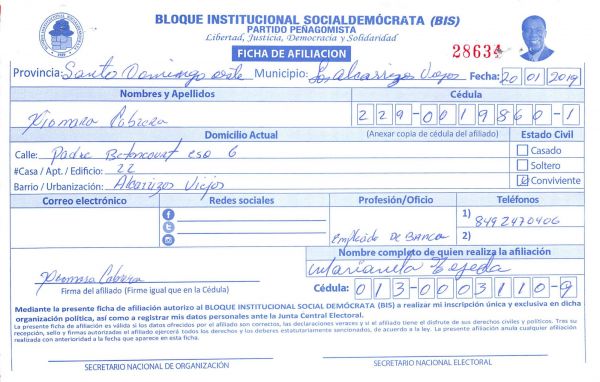 BLOQUE INSTITUCIONAL SOCIALDEMÓCRATA (BIS)
PARTIDO PEÑAGOMISTA
Libertad, Justicia, Democracia y Solidaridad
FICHA DE AFILIACION
28634
Provincia: Santo Domingo oeste Municipio: Los Alcarrizos Viejos Fecha: 20 01 2019
Nombres y Apellidos Cédula
Xiomara Cabrera 229-0019860-1
Domicilio Actual (Anexar copia de cédula del afiliado) Estado Civil
Calle: Padre Betancourt eso 6 Casado
#Casa / Apt. / Edificio: 22 Soltero
Barrio / Urbanización: Alcarrizos Viejos Conviviente
Correo electrónico Redes sociales Profesión/Oficio Teléfonos
1) 8492470406
Empleado DE BANCA 2)
Nombre completo de quien realiza la afiliación
Marianela Tejeda
Xiomara Cabrera
Firma del afiliado (Firme igual que en la Cédula) Cédula: 013-0003110-9
Mediante la presente ficha de afiliación autorizo al BLOQUE INSTITUCIONAL SOCIAL DEMÓCRATA (BIS) a realizar mi inscripción única y exclusiva en dicha
organización política, así como a registrar mis datos personales ante la Junta Central Electoral.
La presente ficha de afiliación es válida si los datos ofrecidos por el afiliado son correctos, las declaraciones veraces y si el afiliado tiene el disfrute de sus derechos civiles y políticos. Tras su
recepción, sello y firmas autorizadas el afiliado ejercerá todos los derechos y los deberes estatutariamente sancionados, de acuerdo a la ley. La presente afiliación anula cualquier afiliación
realizada con anterioridad a la fecha que aparece en esta ficha.
SECRETARIO NACIONAL DE ORGANIZACIÓN SECRETARIO NACIONAL ELECTORAL